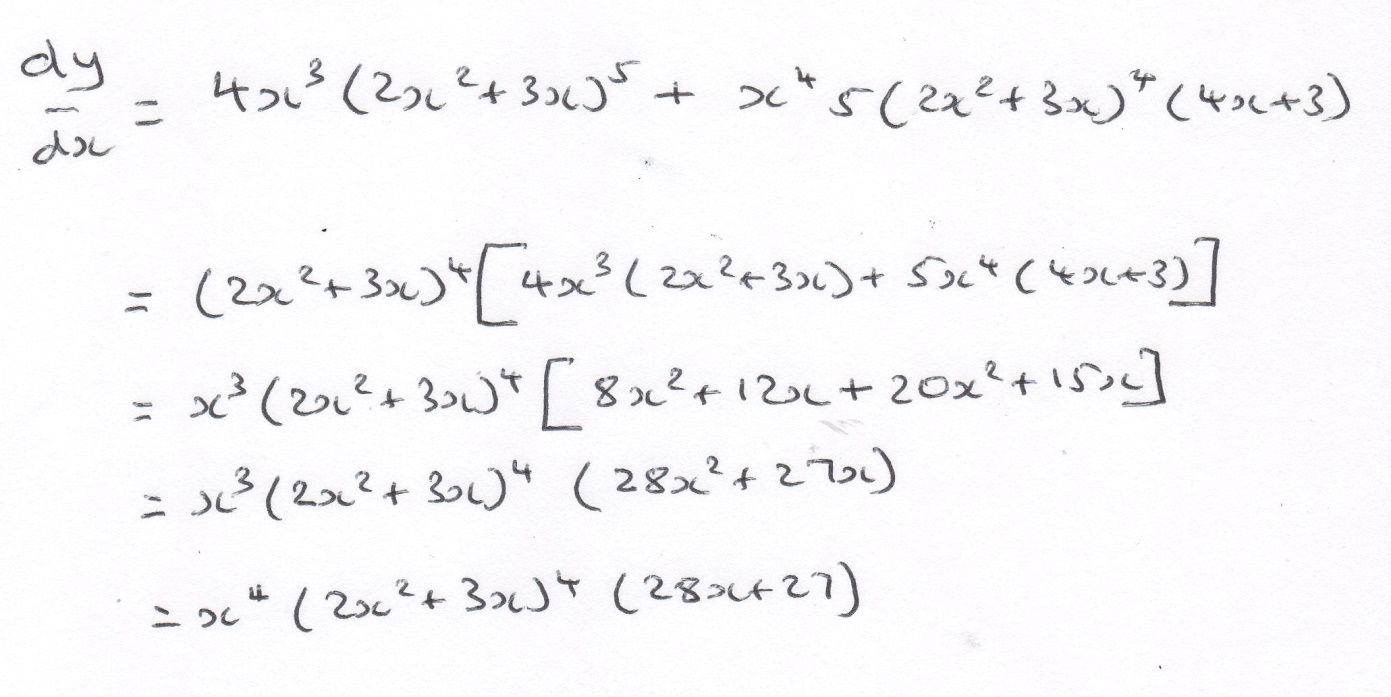 dy/dx = 4x³(2x²+3x)⁵ + x⁴5(2x²+3x)⁴(4x+3)
= (2x²+3x)⁴[4x³(2x²+3x)+5x⁴(4x+3)]
= x³(2x²+3x)⁴[8x²+12x+20x²+15x]
= x³(2x²+3x)⁴(28x²+27x)
= x⁴(2x²+3x)⁴(28x+27)